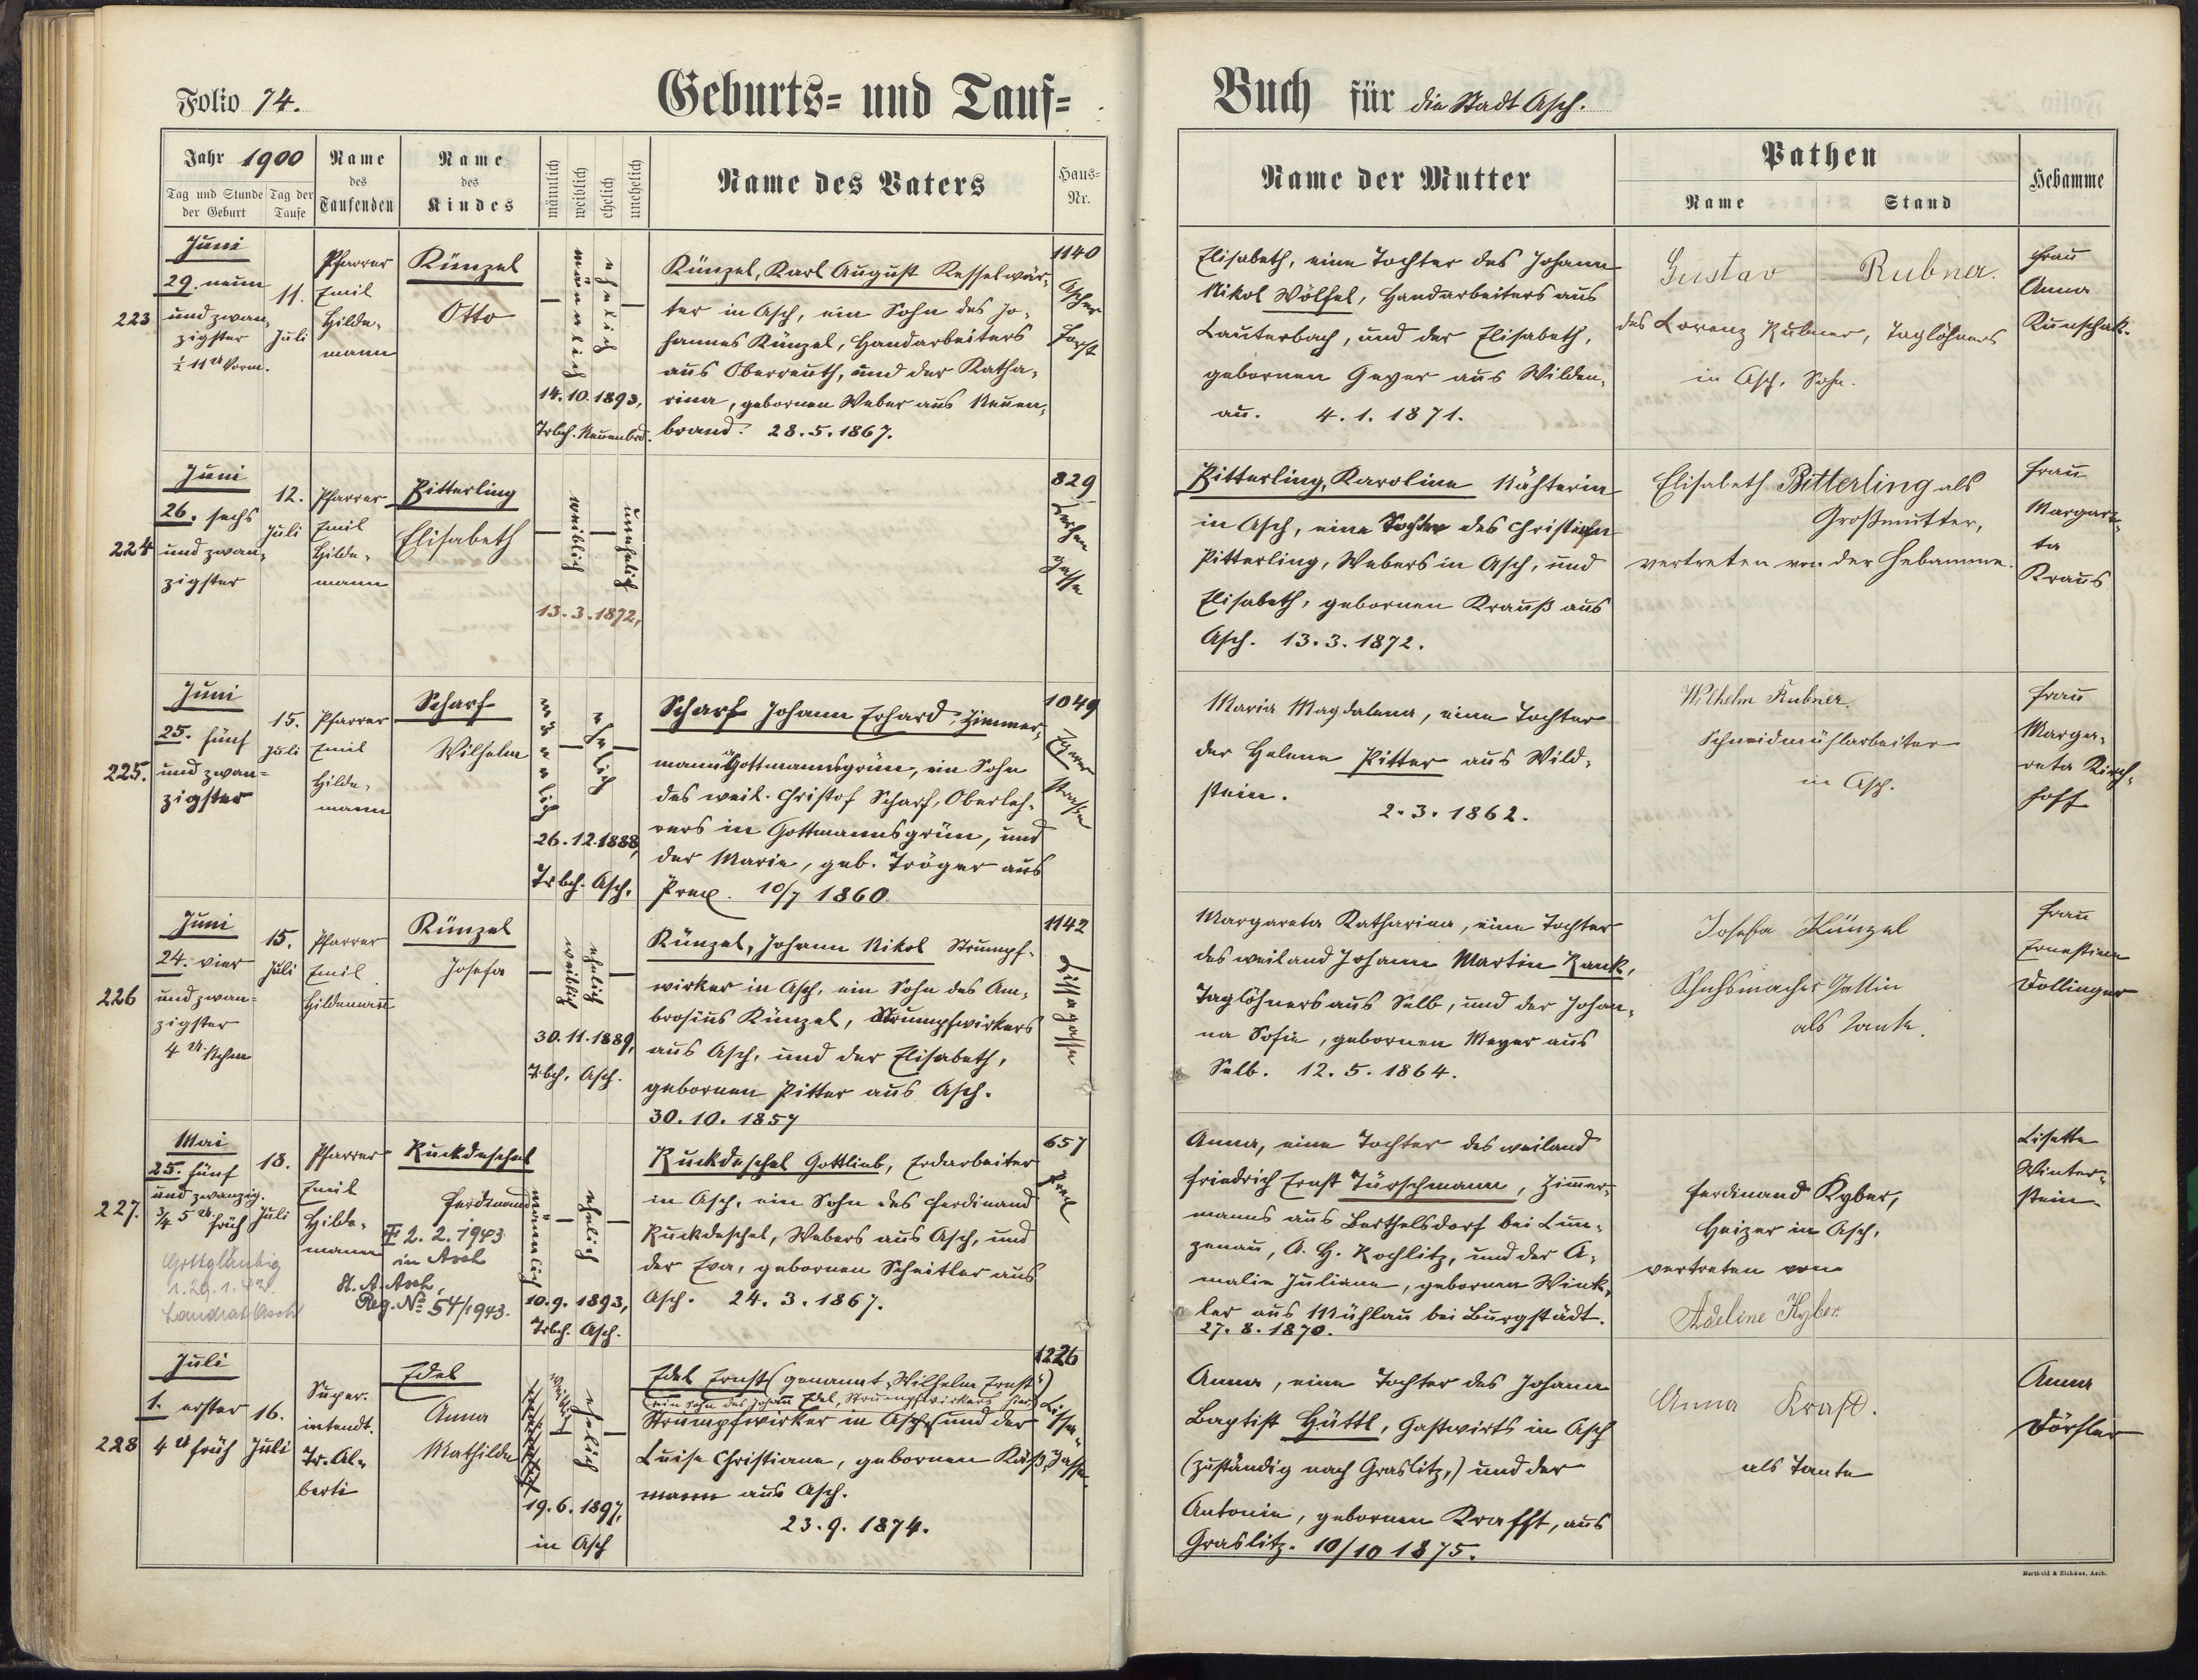 Folio 74.
Geburts- und Tauf-
Buch für die Stadt Asch.
Jahr 1900
Tag und Stunde der Geburt
Tag der Taufe
Name des Taufenden
Name des Kindes
männlich
weiblich
ehelich
unehelich
Name des Vaters
Haus-Nr.
Name der Mutter
Pathen
Name
Stand
Hebamme
223
Juni
29. neun
und zwan-
zigster
½ 11 U Vorm.
11.
Juli
Pfarrer
Emil
Hilde-
mann
Künzel
Otto
männlich
ehelich
14.10.1893,
Trbch. Neuenbrd.
Künzel, Karl August Kesselwär-
ter in Asch, ein Sohn des Jo-
hannes Künzel, Handarbeiters
aus Oberreuth, und der Katha-
rina, gebornen Weber aus Neuen-
brand. 28.5.1867.
1140
Ascher
Forst
Elisabeth, eine Tochter des Johann
Nikol Wölfel, Handarbeiters aus
Lauterbach, und der Elisabeth,
gebornen Geyer aus Wilden-
au. 4.1.1871.
Gustav Rubner.
des Lorenz Rubner, Taglöhners
in Asch, Sohn.
Frau
Anna
Künschak.
224
Juni
26. sechs
und zwan-
zigster
12.
Juli
Pfarrer
Emil
Hilde-
mann
Pitterling
Elisabeth
weiblich
unehelich
13.3.1872,
829
Lerchen
gasse
Pitterling, Karoline Nähterin
in Asch, eine Tochter des Christian
Pitterling, Webers in Asch, und
Elisabeth, gebornen Krauß aus
Asch. 13.3.1872.
Elisabeth Bitterling als
Großmutter,
vertreten von der Hebamme.
Frau
Margare-
ta
Kraus
225.
Juni
25. fünf
und zwan-
zigster
15.
Juli
Pfarrer
Emil
Hilde-
mann
Scharf
Wilhelm
männlich
ehelich
26.12.1888,
Trbch. Asch.
Scharf Johann Erhard, Zimmer-
mann Gottmannsgrün, ein Sohn
des weil. Christof Scharf, Oberleh-
rers in Gottmannsgrün, und
der Maria, geb. Tröger aus
Prex. 10/7 1860.
1049
Egerer
Straße
Maria Magdalena, eine Tochter
der Helene Pitter aus Wild-
stein.
2.3.1862.
Wilhelm Rubner.
Schneidmühlarbeiter
in Asch.
Frau
Marga-
reta Kirch-
hoff
226
Juni
24. vier
und zwan-
zigster
4 U. Nchm
15.
Juli
Pfarrer
Emil
Hildemann
Künzel
Josefa
weiblich
ehelich
30.11.1889,
Trbch. Asch.
Künzel, Johann Nikol Strumpf-
wirker in Asch, ein Sohn des Am-
brosius Künzel, Strumpfwirkers
aus Asch, und der Elisabeth,
gebornen Pitter aus Asch.
30.10.1857
1142
Lissagasse
Margareta Katharina, eine Tochter
des weiland Johann Martin Rank,
Taglöhners aus Selb, und der Johan-
na Sofie, gebornen Meyer aus
Selb. 12.5.1864.
Josefa Künzel
Schuhmachers Gattin
als Tante.
Frau
Ernestine
Dollinger
227.
Mai
25. fünf
und zwanzig.
¾ 5 U. früh
18.
Juli
Pfarrer
Emil
Hilde-
mann
Ruckdeschel
Ferdinand
2.2.1943
in Asch
St. A. Asch,
Reg. No 54/1943.
Gottgläubig
Landrat Asch
männlich
ehelich
10.9.1893,
Trbch. Asch.
Ruckdeschel Gottlieb, Erdarbeiter
in Asch, ein Sohn des Ferdinand
Ruckdeschel, Webers aus Asch, und
der Eva, gebornen Scheitler aus
Asch. 24.3.1867.
657
Anna, eine Tochter des weiland
Friedrich Ernst Türschmann, Zimmer-
manns aus Berthelsdorf bei Lun-
zenau, A. H. Rochlitz, und der A-
malie Juliane, gebornen Wink-
ler aus Mühlau bei Burgstädt.
27.8.1870.
Ferdinand Kyber,
Heizer in Asch,
vertreten von
Adeline Kyber.
Lisette
Winter-
stein
228
Juli
1. erster
4 U früh
16.
Juli
Super-
intendt.
Tr. Al-
berti
Edel
Anna
Mathilde
weiblich
ehelich
19.6.1897,
in Asch
Edel Ernst (genannt "Wilhelm Ernst")
(ein Sohn des Johann Edel, Strumpfwirkers hier)
Strumpfwirker in Asch, und der
Luise Christiane, gebornen Käß-
mann aus Asch.
23.9.1874.
1226
Lissa-
Gasse.
Anna, eine Tochter des Johann
Baptist Hüttl, Gastwirts in Asch
(zuständig nach Graslitz,) und der
Antonie, gebornen Krafft, aus
Graslitz. 10/10 1875.
Anna Kraft.
als Tante
Anna
Dörfler
Berthold & Zichäus, Asch.